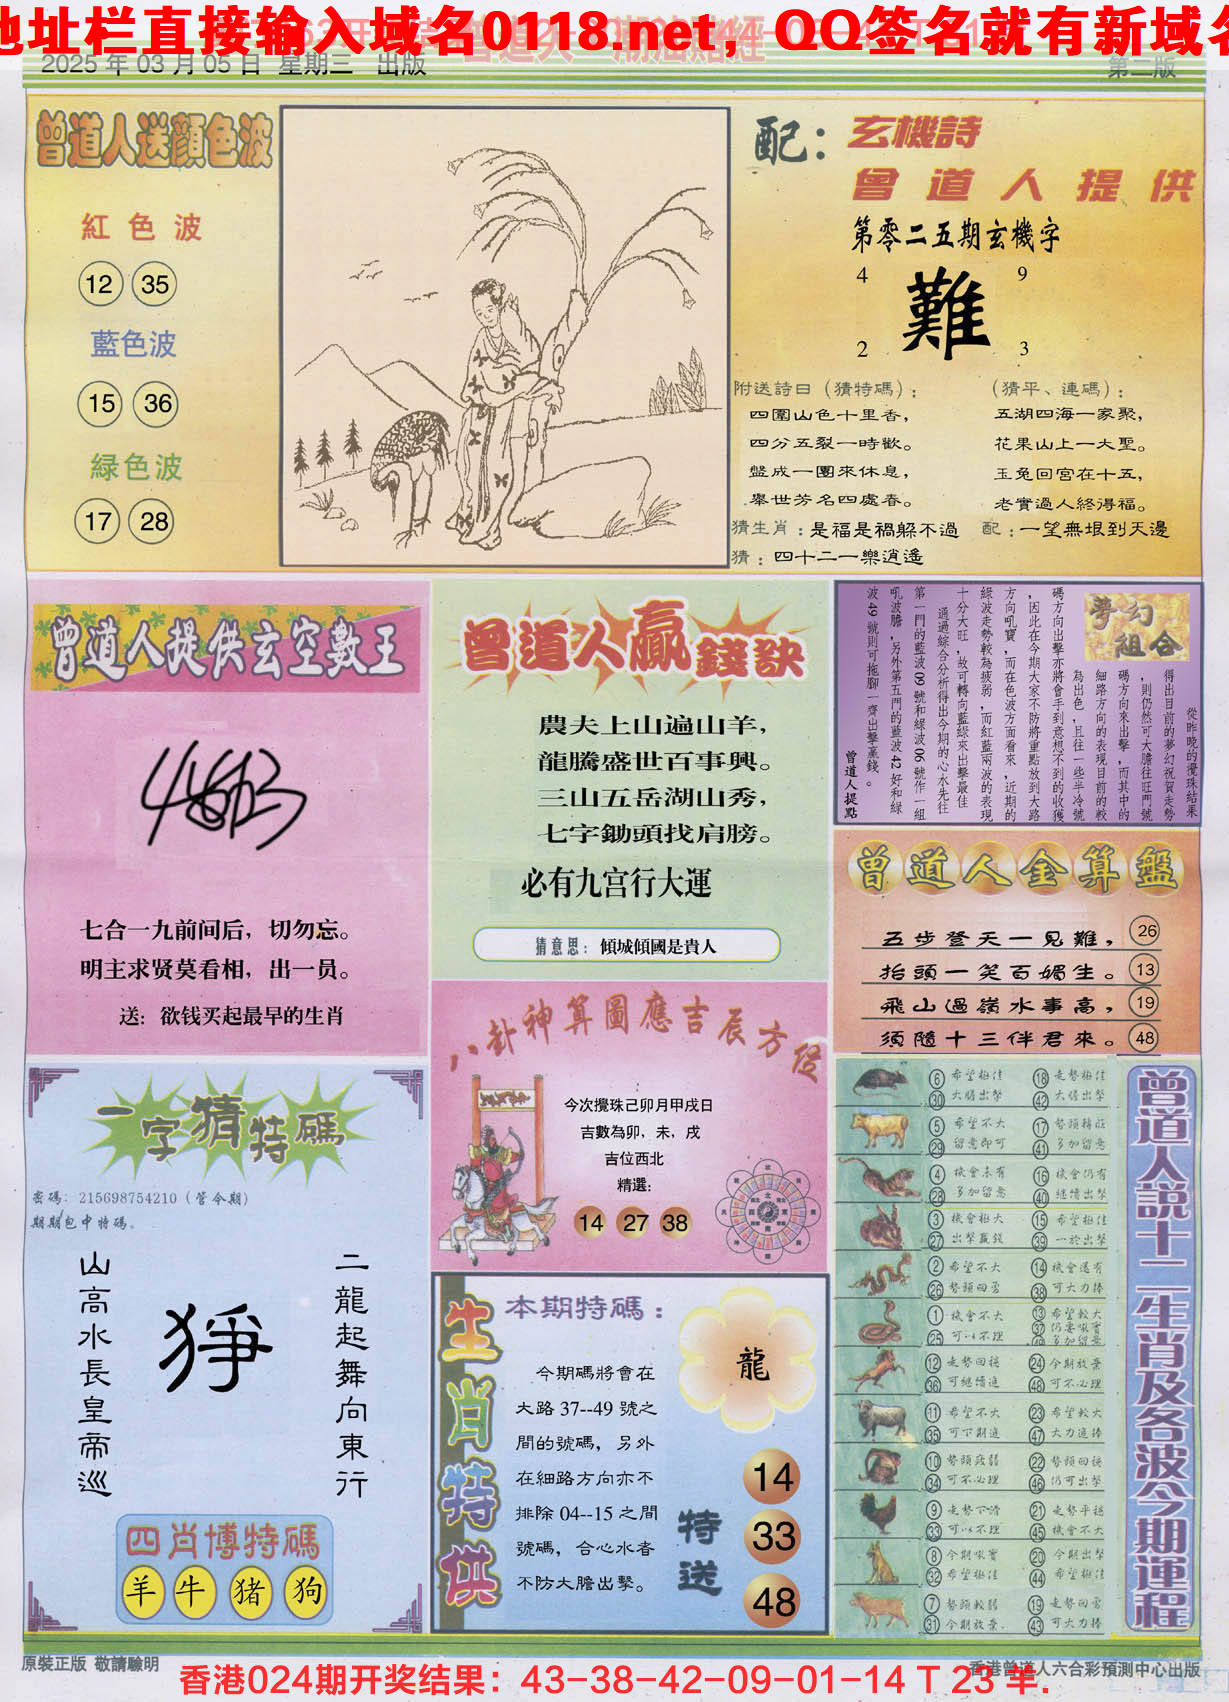 地址栏直接输入域名0118.net，QQ签名就有新域名
2025 年 03 月 05 日 星期三 出版
第二版
曾道人送顏色波
紅色波
12 35
藍色波
15 36
緑色波
17 28
配：
玄機詩
曾道人提供
第零二五期玄機字
4 9
難
2 3
附送詩曰（猜特碼）：
四圍山色十里香，
四分五裂一時歡。
盤成一團來休息，
舉世芳名四處春。
（猜平、連碼）：
五湖四海一家聚，
花果山上一大聖。
玉兔回宮在十五，
老實過人終得福。
猜生肖：是福是禍躲不過
配：一望無垠到天邊
猜：四十二一樂逍遙
曾道人提供玄空數王
七合一九前间后，切勿忘。
明主求贤莫看相，出一员。
送：欲钱买起最早的生肖
曾道人贏錢訣
農夫上山遍山羊，
龍騰盛世百事興。
三山五岳湖山秀，
七字鋤頭找肩膀。
必有九宫行大運
猜意思：傾城傾國是貴人
夢幻
組合
從昨晚的攪珠結果
得出目前的夢幻祝賀走勢
，則仍然可大膽往旺門號
碼方向來出擊，而其中的
細路方向的表現目前的較
為出色，且往一些半冷號
碼方向出擊亦將會手到意想不到的收獲
，因此在今期大家不防將重點放到大路
方向吼寶，而在色波方面看來，近期的
綠波走勢較為疲弱，而紅藍兩波的表現
十分大旺，故可轉向藍綠來出擊最佳
通過綜合分析得出今期的心水先往
第一門的藍波 09 號和綠波 06 號作一組
吼波膽，另外第五門的藍波 42 好和綠
波 49 號則可拖腳一齊出擊贏錢。
曾道人提點
曾道人金算盤
五步登天一見難， 26
抬頭一笑百媚生。 13
飛山過嶺水事高， 19
須隨十三伴君來。 48
八卦神算圖應吉辰方位
今次攪珠己卯月甲戌日
吉數為卯，未，戌
吉位西北
精選：
14 27 38
一字猜特碼
密碼：215698754210（管今期）
期期包中特碼。
二龍起舞向東行
猙
山高水長皇帝巡
四肖博特碼
羊 牛 猪 狗
生肖特供
本期特碼：
龍
今期碼將會在
大路 37--49 號之
間的號碼，另外
在細路方向亦不
排除 04--15 之間
號碼，合心水者
不防大膽出擊。
特送
14
33
48
曾道人説十二生肖及各波今期運程
6 希望極佳 18 走勢極佳
30 大膽出擊 42 大膽出擊
5 希望不大 17 勢頭精旺
29 留意即可 41 多加留意
4 機會未有 16 機會仍有
28 多加留意 40 繼續出擊
3 機會極大 15 希望極佳
27 出擊贏錢 39 一於出擊
2 希望不大 14 機會還有
26 勢頭回勇 38 可大力捧
1 機會不大 13 希望較大
25 可以不理 37 仍要吼實
多加留意
12 走勢回穩 24 今期放棄
36 可繼續追 48 可不必理
11 希望不大 23 希望較大
35 可下期追 47 大力追捧
10 勢頭疲弱 22 勢頭回穩
34 可不必理 46 仍可出擊
9 走勢下滑 21 走勢平穩
33 可以不理 45 機會不大
8 今期吼實 20 今期出擊
32 希望極佳 44 希望極佳
7 勢頭較弱 19 走勢回勇
31 今期放棄. 43 可大力捧
原裝正版 敬請驗明
香港曾道人六合彩預測中心出版
香港024期开奖结果：43-38-42-09-01-14 T 23 羊.